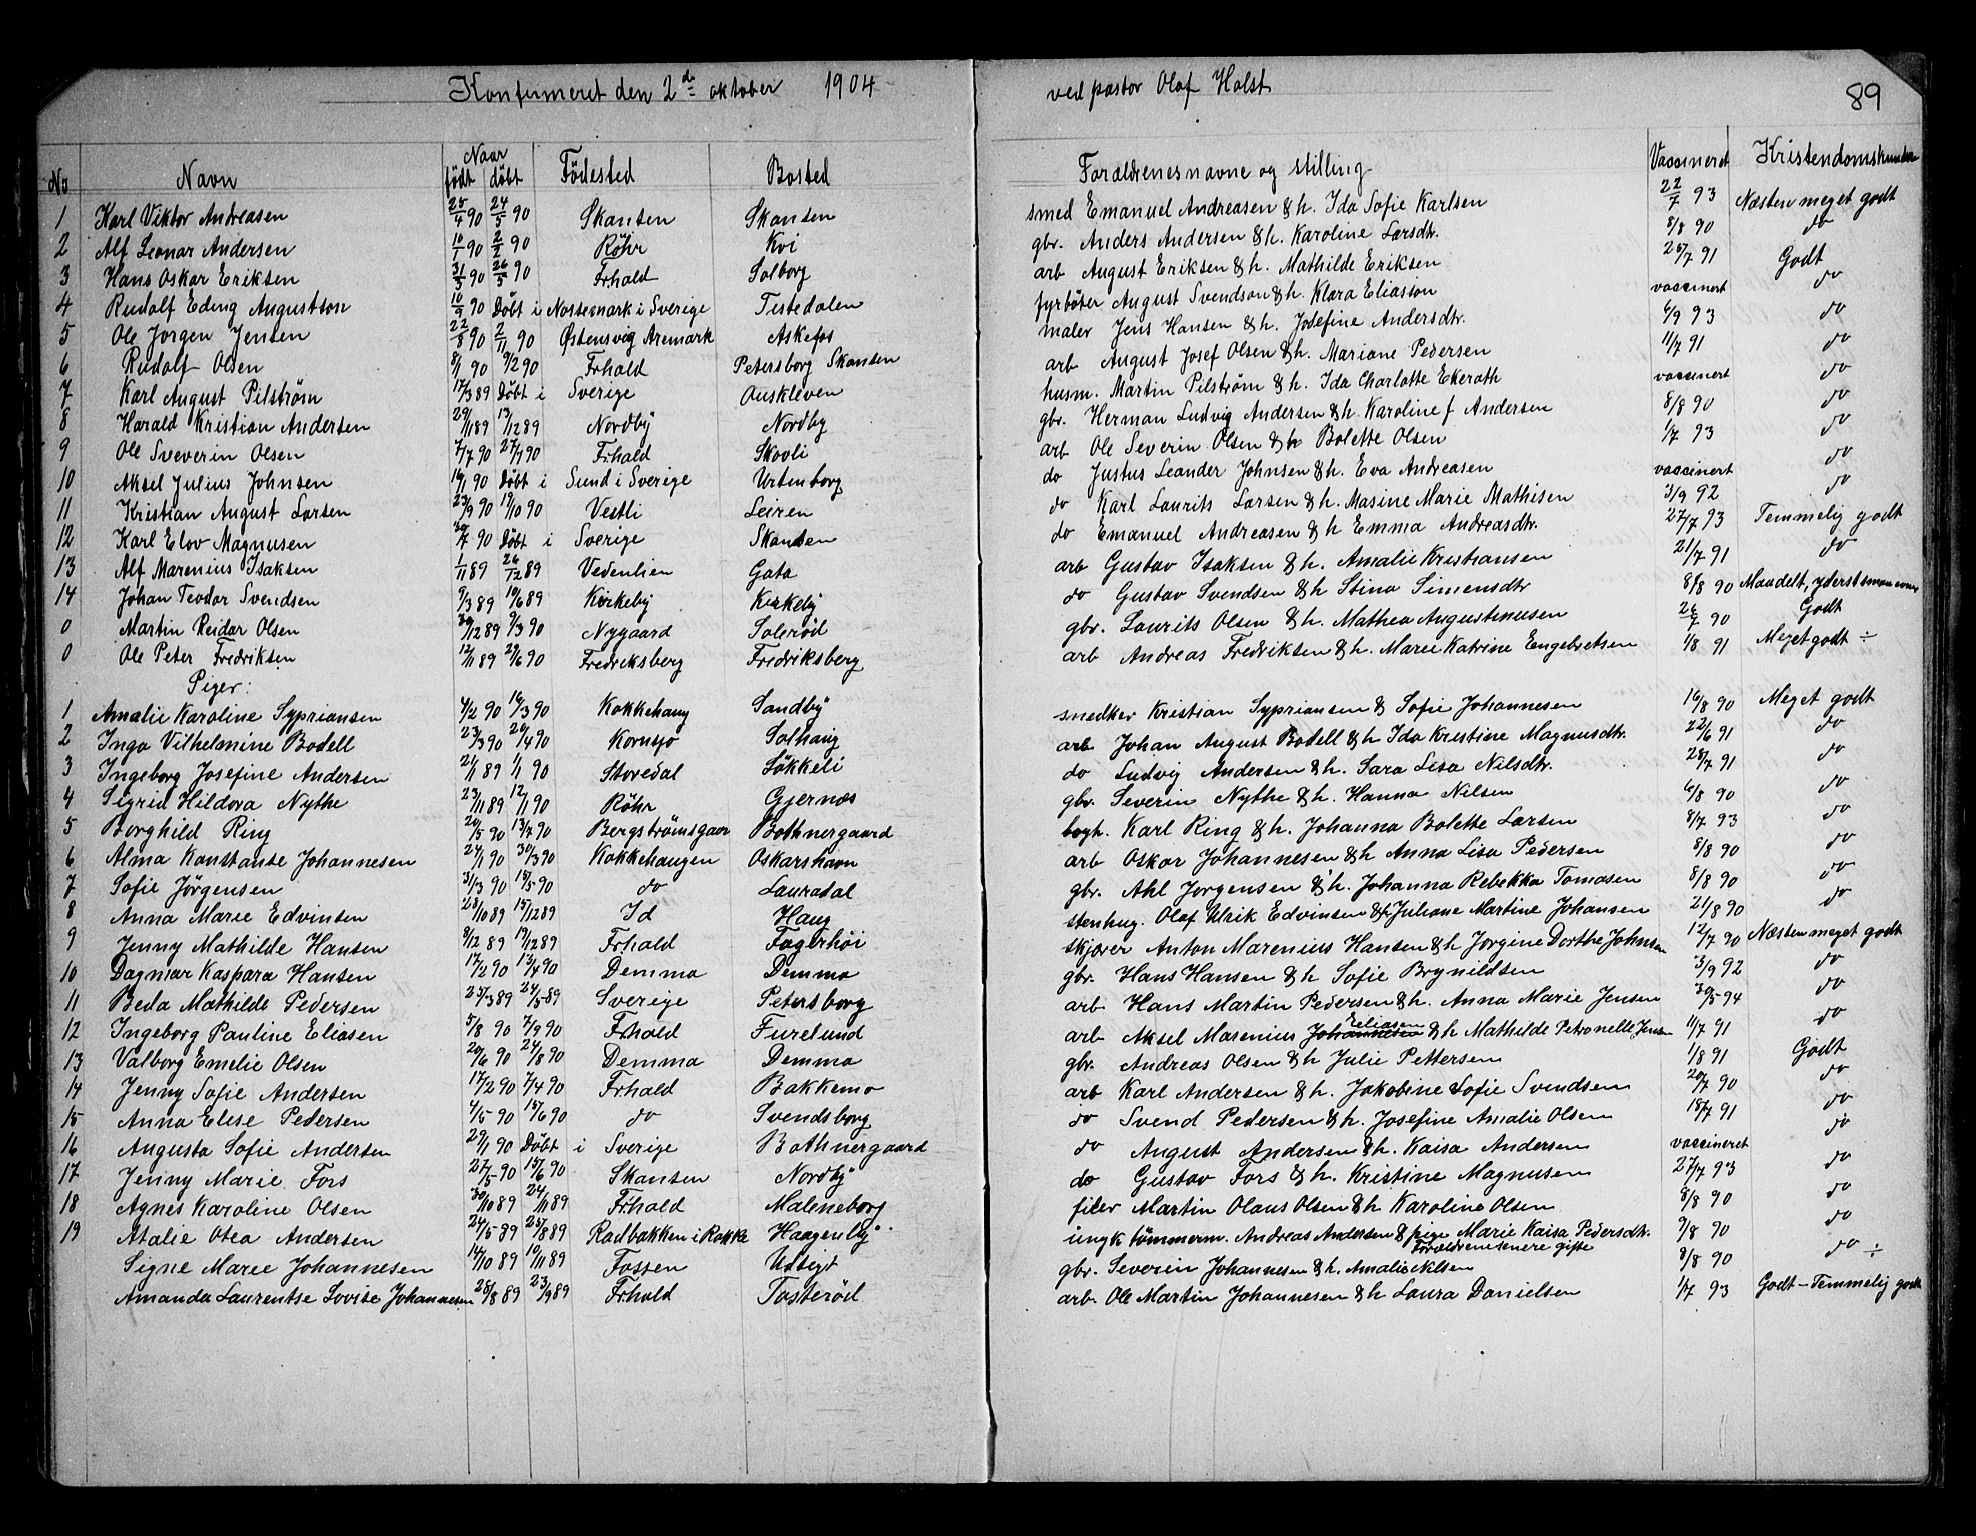 Konfirmeret den 2de oktober 1904 ved pastor Olaf Holst 89
No Navn Naar født døbt Fødested Bosted Forældrenes navne og stilling Vaccineret Kristendomskundsk
1 Karl Viktor Andreasen 25/4 90 24/5 90 Skansen Skansen smed Emanuel Andreasen & h. Ida Sofie Karlsen 22/7 93 Næsten meget godt
2 Alf Leonar Andersen 10/1 90 2/2 90 Röhr Kvi gbr. Anders Andersen & h. Karoline Larsdtr. 8/8 90 do
3 Hans Oskar Eriksen 31/3 90 26/5 90 Frhald Solborg arb August Eriksen & h. Mathilde Eriksen 25/7 91 Godt
4 Rudolf Eding Augustson 10/9 90 Døbt i Nossemark i Sverige Tistedalen fyrböter August Svendson & h. Klara Eliasson vaccinert do
5 Ole Jørgen Jensen 22/8 90 2/11 90 Østensvig Aremark Askefos maler Jens Hansen & h. Josefine Andersdtr. 6/9 93 do
6 Rudolf Olsen 8/1 90 9/2 90 Frhald Petersborg Skansen arb August Josef Olsen & h. Mariane Pedersen 11/7 91 do
7 Karl August Pilström 17/3 89 Døbt i Sverige Auskleven husm. Martin Pilström & h. Ida Charlotte Ekeroth vaccinert do
8 Harald Kristian Andersen 29/11 89 13/12 89 Nordby Nordby gbr. Herman Ludvig Andersen & h. Karoline f Andersen 8/8 90 do
9 Ole Sveverin Olsen 7/7 90 27/7 90 Frhald Skovli arb Ole Severin Olsen & h Bolette Olsen 1/7 93 do
10 Aksel Julius Johnsen 16/1 90 Døbt i Sund i Sverige Urtenborg do Justus Leander Johnsen & h. Eva Andreasen vaccinert do
11 Kristian August Larsen 23/9 90 19/10 90 Vestli Leiren do Karl Laurits Larsen & h. Masine Marie Mathisen 3/9 92 do
12 Karl Elov Magnusen 30/7 90 Døbt i Sverige Skansen do Emanuel Andreasen & h Emma Andreasdtr. 27/7 93 Temmelig godt
13 Alf Marenius Isaksen 1/11 89 26/12 89 Vedenlien Gata arb Gustav Isaksen & h. Amalie Kristiansen 21/7 91 do
14 Johan Teodor Svendsen 9/3 89 10/6 89 Kirkeby Kirkeby do Gustav Svendsen & h Stina Simensdtr 8/8 90 Maadelt, yderst smaa evner
0 Martin Reidar Olsen 30/12 89 9/3 90 Nygaard Solerød gbr. Laurits Olsen & h. Mathea Augustinusen 26/7 90 Godt
0 Ole Peter Fredriksen 12/11 89 29/6 90 Fredriksberg Fredriksberg arb Andreas Fredriksen & h. Maree Katrine Engebretsen 1/8 91 Meget godt ÷
Piger:
1 Amalie Karoline Sypriansen 4/2 90 16/3 90 Kokkehaug Sandby snedker Kristian Sypriansen & Sofie Johannesen 16/8 90 Meget godt
2 Inga Vilhelmine Bodell 23/3 90 20/4 90 Kornsjo Solhaug arb Johan August Bodell & h Ida Kristine Magnusdtr. 22/6 91 do
3 Ingeborg Josefine Andersen 21/11 89 1/1 90 Storedal Løkkeli do Ludvig Andersen & h. Sara Lisa Nilsdtr. 28/7 91 do
4 Sigrid Hildora Nythe 23/11 89 12/1 90 Röhr Gjernæs gbr. Severin Nythe & h. Hanna Nilsen 6/8 90 do
5 Borghild Ring 20/5 90 13/7 90 Bergstrømsgaar Bothnergaard bogh. Karl Ring & h. Johanna Bolette Larsen 8/7 93 do
6 Alma Konstanse Johannesen 24/1 90 30/3 90 Kokkehaugen Oskarshavn arb Oskar Johannesen & h Anna Lisa Pedersen 8/8 90 do
7 Sofie Jørgensen 31/3 90 18/5 90 do Lauradal gbr. Ahl Jørgensen & h. Johanna Rebekka Tomasen 8/8 90 do
8 Anna Marie Edvinsen 28/10 89 15/12 89 Id Haug stenhug. Olaf Ulrik Edvinsen & h Juliane Martine Johansen 21/8 90 do
9 Jenny Mathilde Hansen 8/12 89 19/12 89 Frhald Fagerhöi skjærer Anton Marenius Hansen & h Jørgine Dorthe Johnsen 12/7 90 Næsten meget godt
10 Dagmar Kaspara Hansen 17/2 90 13/4 90 Demma Demma gbr. Hans Hansen & h Sofie Brynildsen 3/9 92 do
11 Beda Mathilde Pedersen 25/3 89 24/5 89 Sverige Petersborg arb Hans Martin Pedersen & h. Anna Marie Jensen 30/5 94 do
12 Ingeborg Pauline Eliasen 5/8 90 7/9 90 Frhald Furelund arb Aksel Marenius Johannesen Eeliasen & h Mathilde Petronelle Jensen 11/7 91 do
13 Valborg Emelie Olsen 20/6 90 24/8 90 Demma Demma gbr. Andreas Olsen & h Julie Pettersen 1/8 91 Godt
14 Jenny Sofie Andersen 17/2 90 7/4 90 Frhald Bakkemo arb Karl Andersen & h. Jakobine Sofie Svendsen 20/7 90 do
15 Anna Elise Pedersen 4/5 90 15/6 90 do Svendsborg do Svend Pedersen & h. Josefine Amalie Olsen 15/7 91 do
16 Augusta Sofie Andersen 29/1 90 Döbt i Sverige Bothnergaard do August Andersen & h. Kaisa Andersen vaccineret do
17 Jenny Marie Fors 27/5 90 15/6 90 Skansen Nordby do Gustav Fors & h. Kristine Magnusen 27/7 93 do
18 Agnes Karoline Olsen 30/10 89 24/11 89 Frhald Maleneborg filer Martin Olaus Olsen & h Karoline Olsen 8/8 90 do
19 Atalie Otea Andersen 24/5 89 25/8 89 Rodbakken i Rokke Haagenby ungk tømmerm. Andreas Andersen & pige Marie Kaisa Pedersdtr. Forældrene senere gifte 9/8 90 do
Signe Maree Johannesen 14/10 89 10/11 89 Fossen Udsigt gbr. Severin Johannesen & h. Amalie Nilsen 8/8 90 do ÷
Amanda Laurentse Lovise Johannesen 28/8 89 23/9 89 Frhald Tosterød arb. Ole Martin Johannesen & h Laura Danielsen 1/7 93 Godt - Temmelig godt